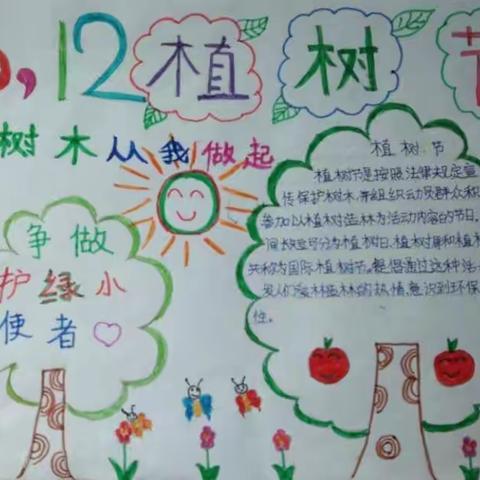 ,12植树节
树木从我做起
争做
护绿小
使者
植树节
植树节是按照法律规定宣
传保护树木,并组织动员群众积
参加以植树造林为活动内容的节日。
间长短可分为植树日、植树周和植树
共称为国际植树节。提倡通过这种活
人们爱林造林的热情、意识到环保
性。